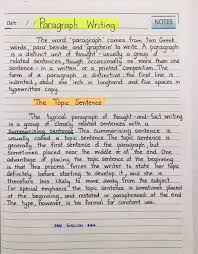 Paragraph Writing
Date : / /
NOTES
The word 'paragraph' comes from Two Greek
words, 'para' beside and 'graphein' to write. A paragraph
is a distinct unit of thought - usually a group of
related sentences, though occasionally no more than one
sentence - in a written or a printed composition. The
form of a paragraph is distinctive: the first line is
indented, about one inch in longhand and five spaces in
typewritten copy.
The Topic Sentence
The typical paragraph of thought-and-fact writing
is a group of closely related sentences with a
summarising sentence. This summarising sentence is
usually called a topic sentence. The topic sentence is
generally the first sentence of the paragraph, but
sometimes placed near the middle or at the end. One
advantage of placing the topic sentence at the beginning
is that this process forces the writer to state his topic
definitely before starting to develop it, and she is
therefore less likely to move away from the subject.
For special emphasis the topic sentence is sometimes placed
at the beginning, and restated or paraphrased at the end.
The type, however, is too formal for constant use.
ENGLISH